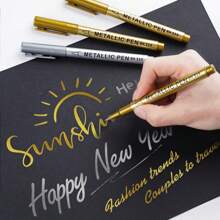 METALLIC PEN
METALLIC PEN
METALLIC PEN
He
Sunshi
Happy New Year
Fashion trends
Couples to travel